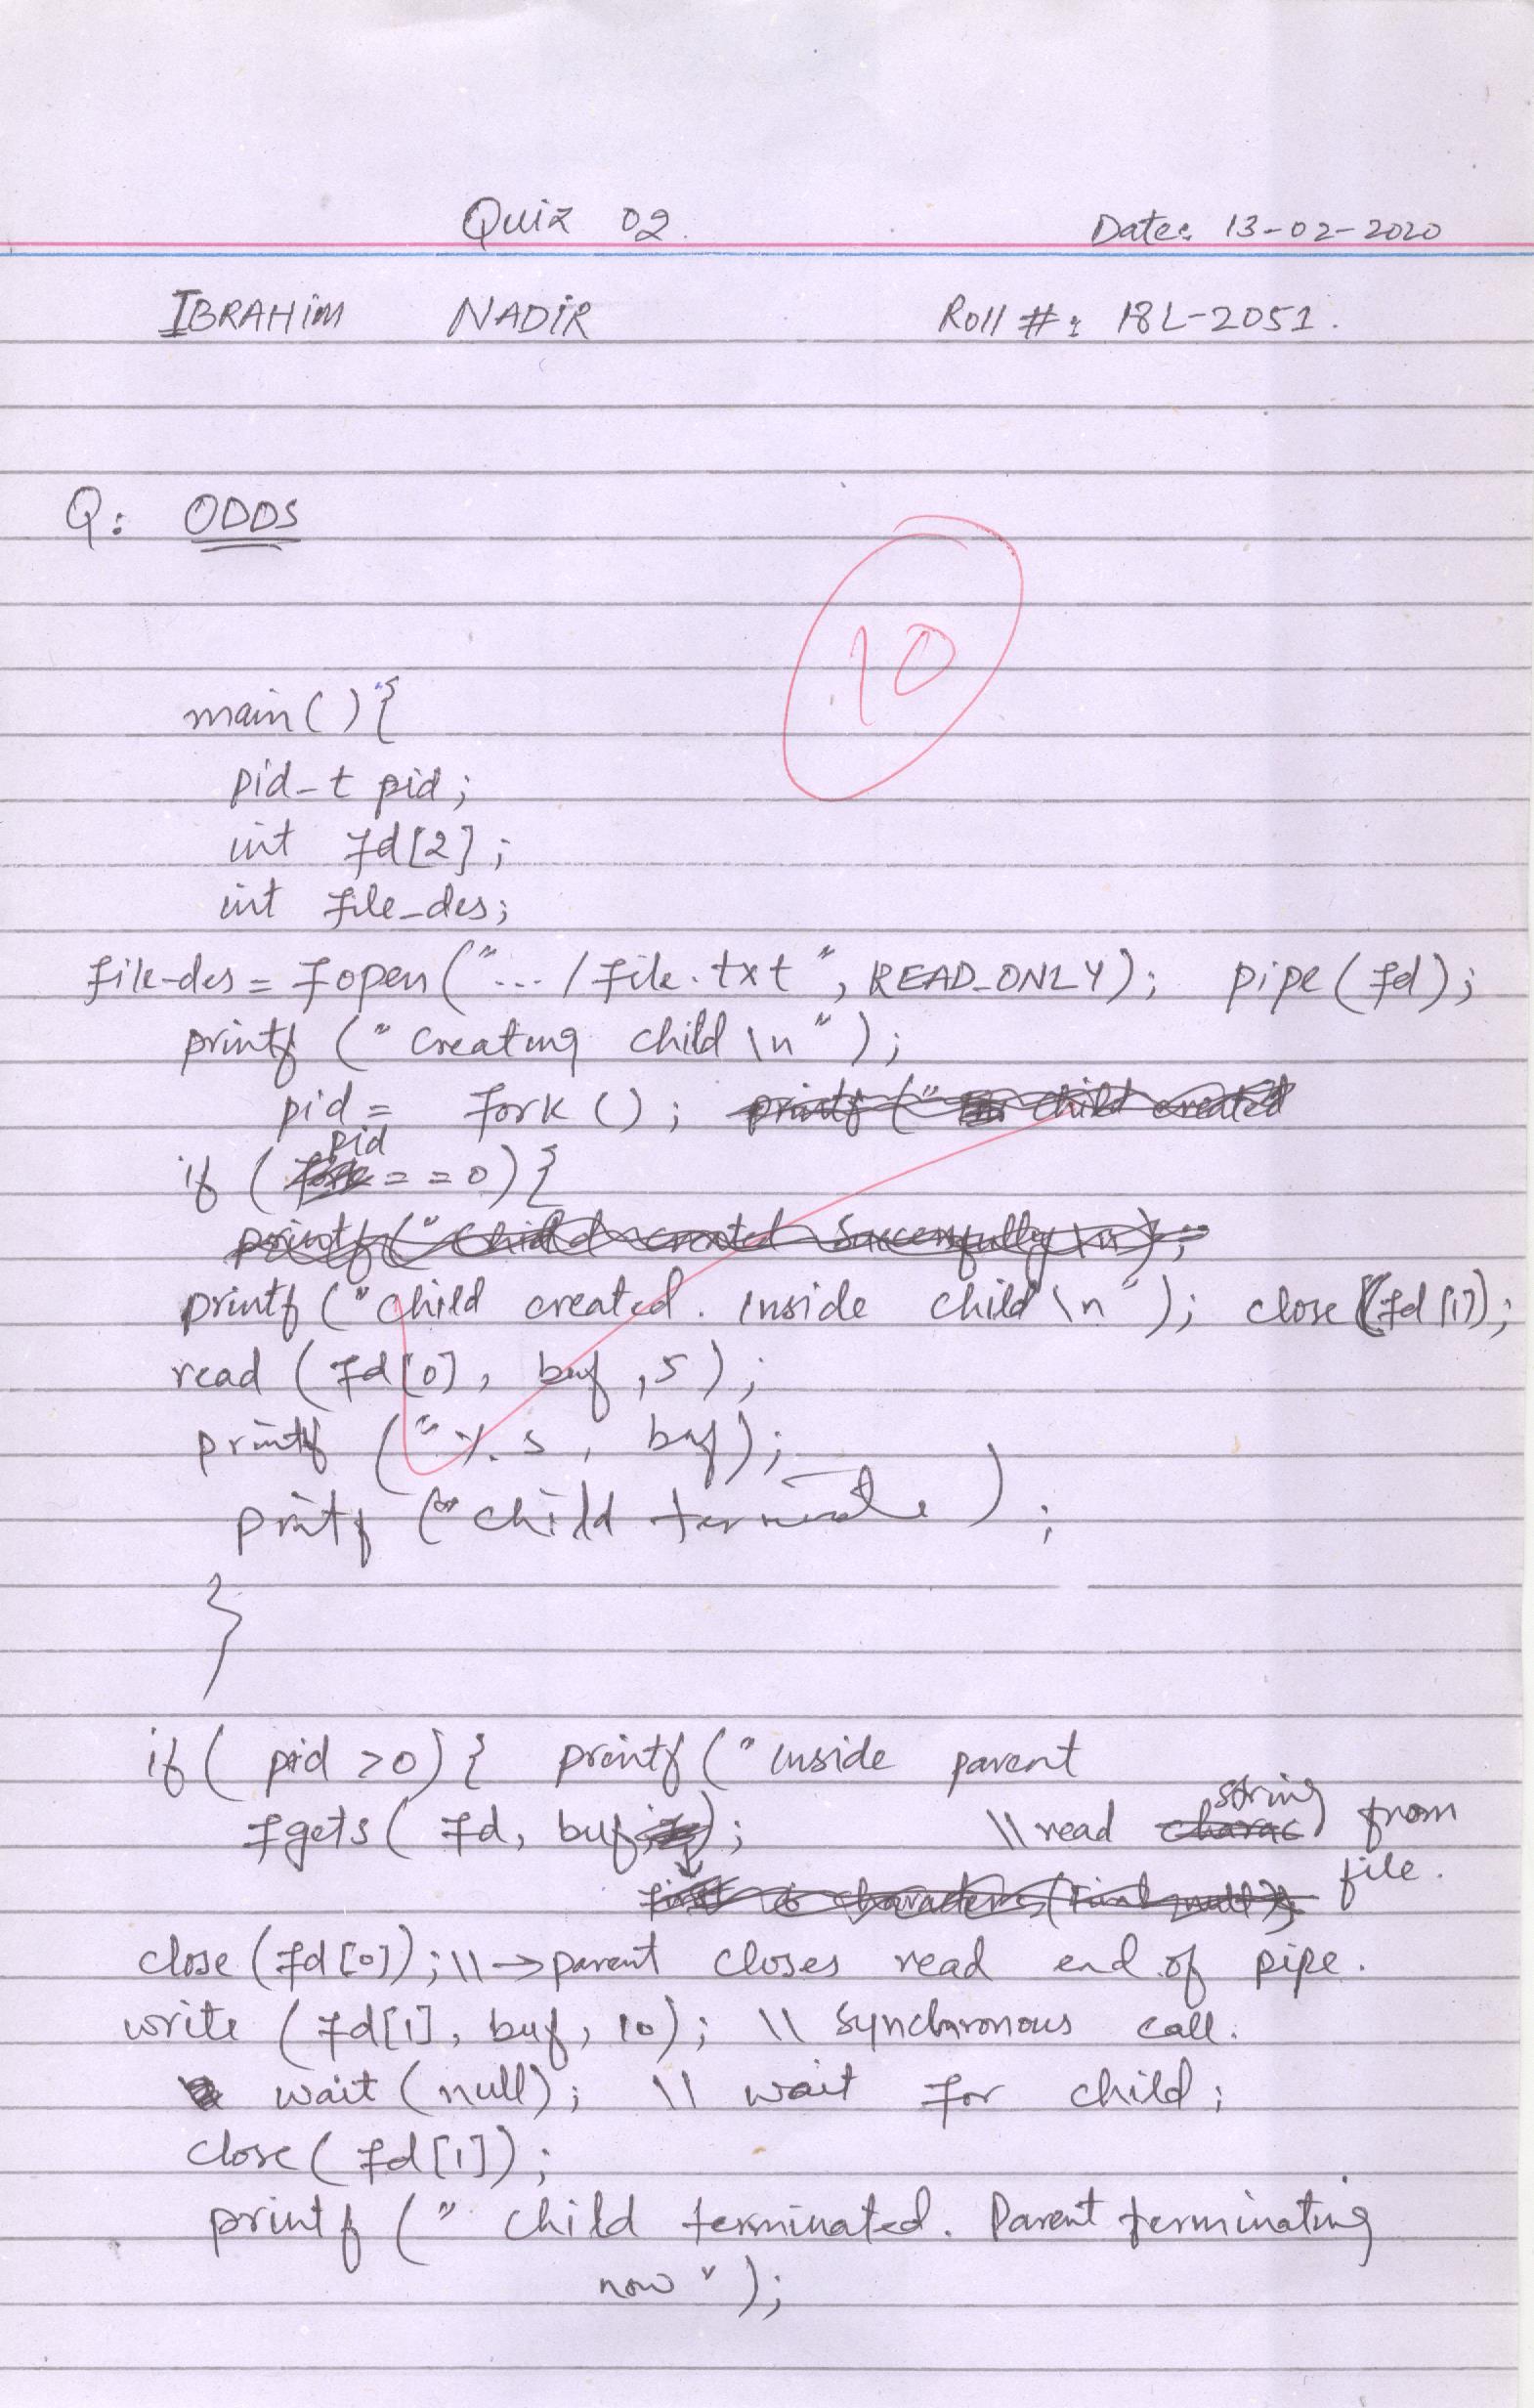 Quiz 02.
Date: 13-02-2020
IBRAHIM NADIR
Roll #: 18L-2051.
Q: ODDS
10
main(){
pid_t pid;
int fd[2];
int file_des;
file-des = fopen("... / file.txt", READ_ONLY); pipe(fd);
printf ("Creating child \n");
pid = fork (); printf (" child created
pid
if ( fork = = 0) {
printf("Child created Successfully \n");
printf ("child created. Inside child \n"); close (fd[1]);
read (fd[0], buf, 5);
printf ("%s, buf);
printf ("child terminate );
}
if( pid >0) { printf ("inside parent
string
fgets( fd, buf ); \\ read charac from
file.
first 6 characters, (
close (fd[0]); \\ → parent closes read end of pipe.
write (fd[1], buf, 10); \\ Synchronous call.
wait (null); \\ wait for child;
close( fd[1]);
printf (" child terminated. Parent terminating
now");